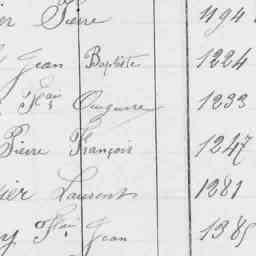 er Pierre 1194
Jean Baptiste 1224
Fçois 1233
Pierre François 1247
ier Laurent 1281
y Fçis Jean 1385